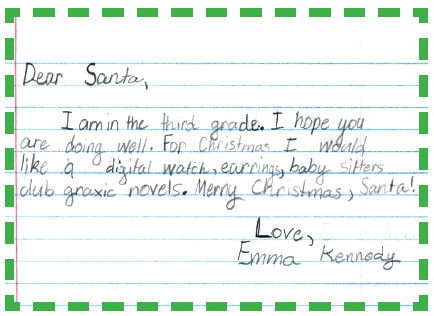 Dear Santa,
I am in the third grade. I hope you
are doing well. For Christmas I would
like a digital watch, earrings, baby sitters
club graxic novels. Merry Christmas, Santa!
Love,
Emma Kennedy